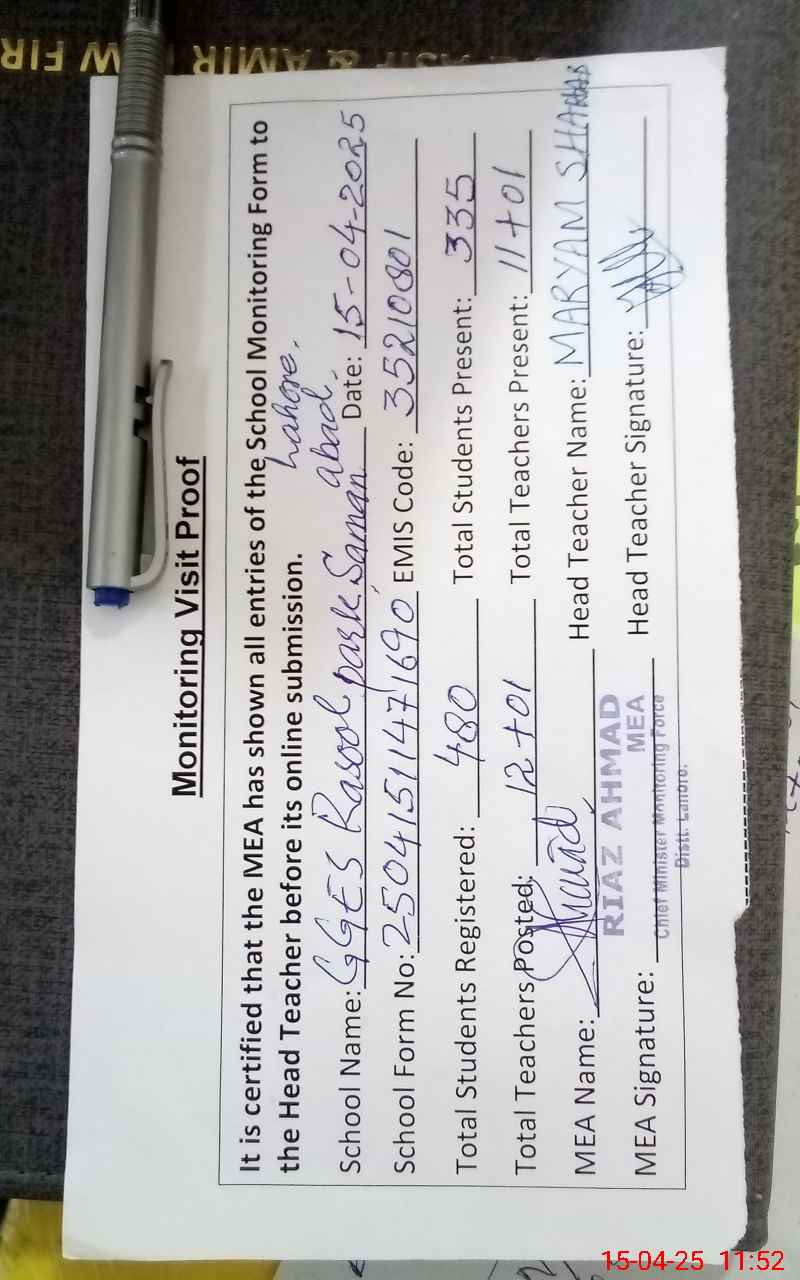 Monitoring Visit Proof
It is certified that the MEA has shown all entries of the School Monitoring Form to
the Head Teacher before its online submission.
Lahore.
School Name: GGES Rasool park, Saman abad, Date: 15-04-2025
School Form No: 25041511471690 EMIS Code: 35210801
Total Students Registered: 480 Total Students Present: 335
Total Teachers Posted: 12+01 Total Teachers Present: 11+01
MEA Name: Head Teacher Name: MARYAM
RIAZ AHMAD
MEA
MEA Signature: Head Teacher Signature:
Chief Minister Monitoring Force
Distt. Lahore.
& AMIR
15-04-25 11:52